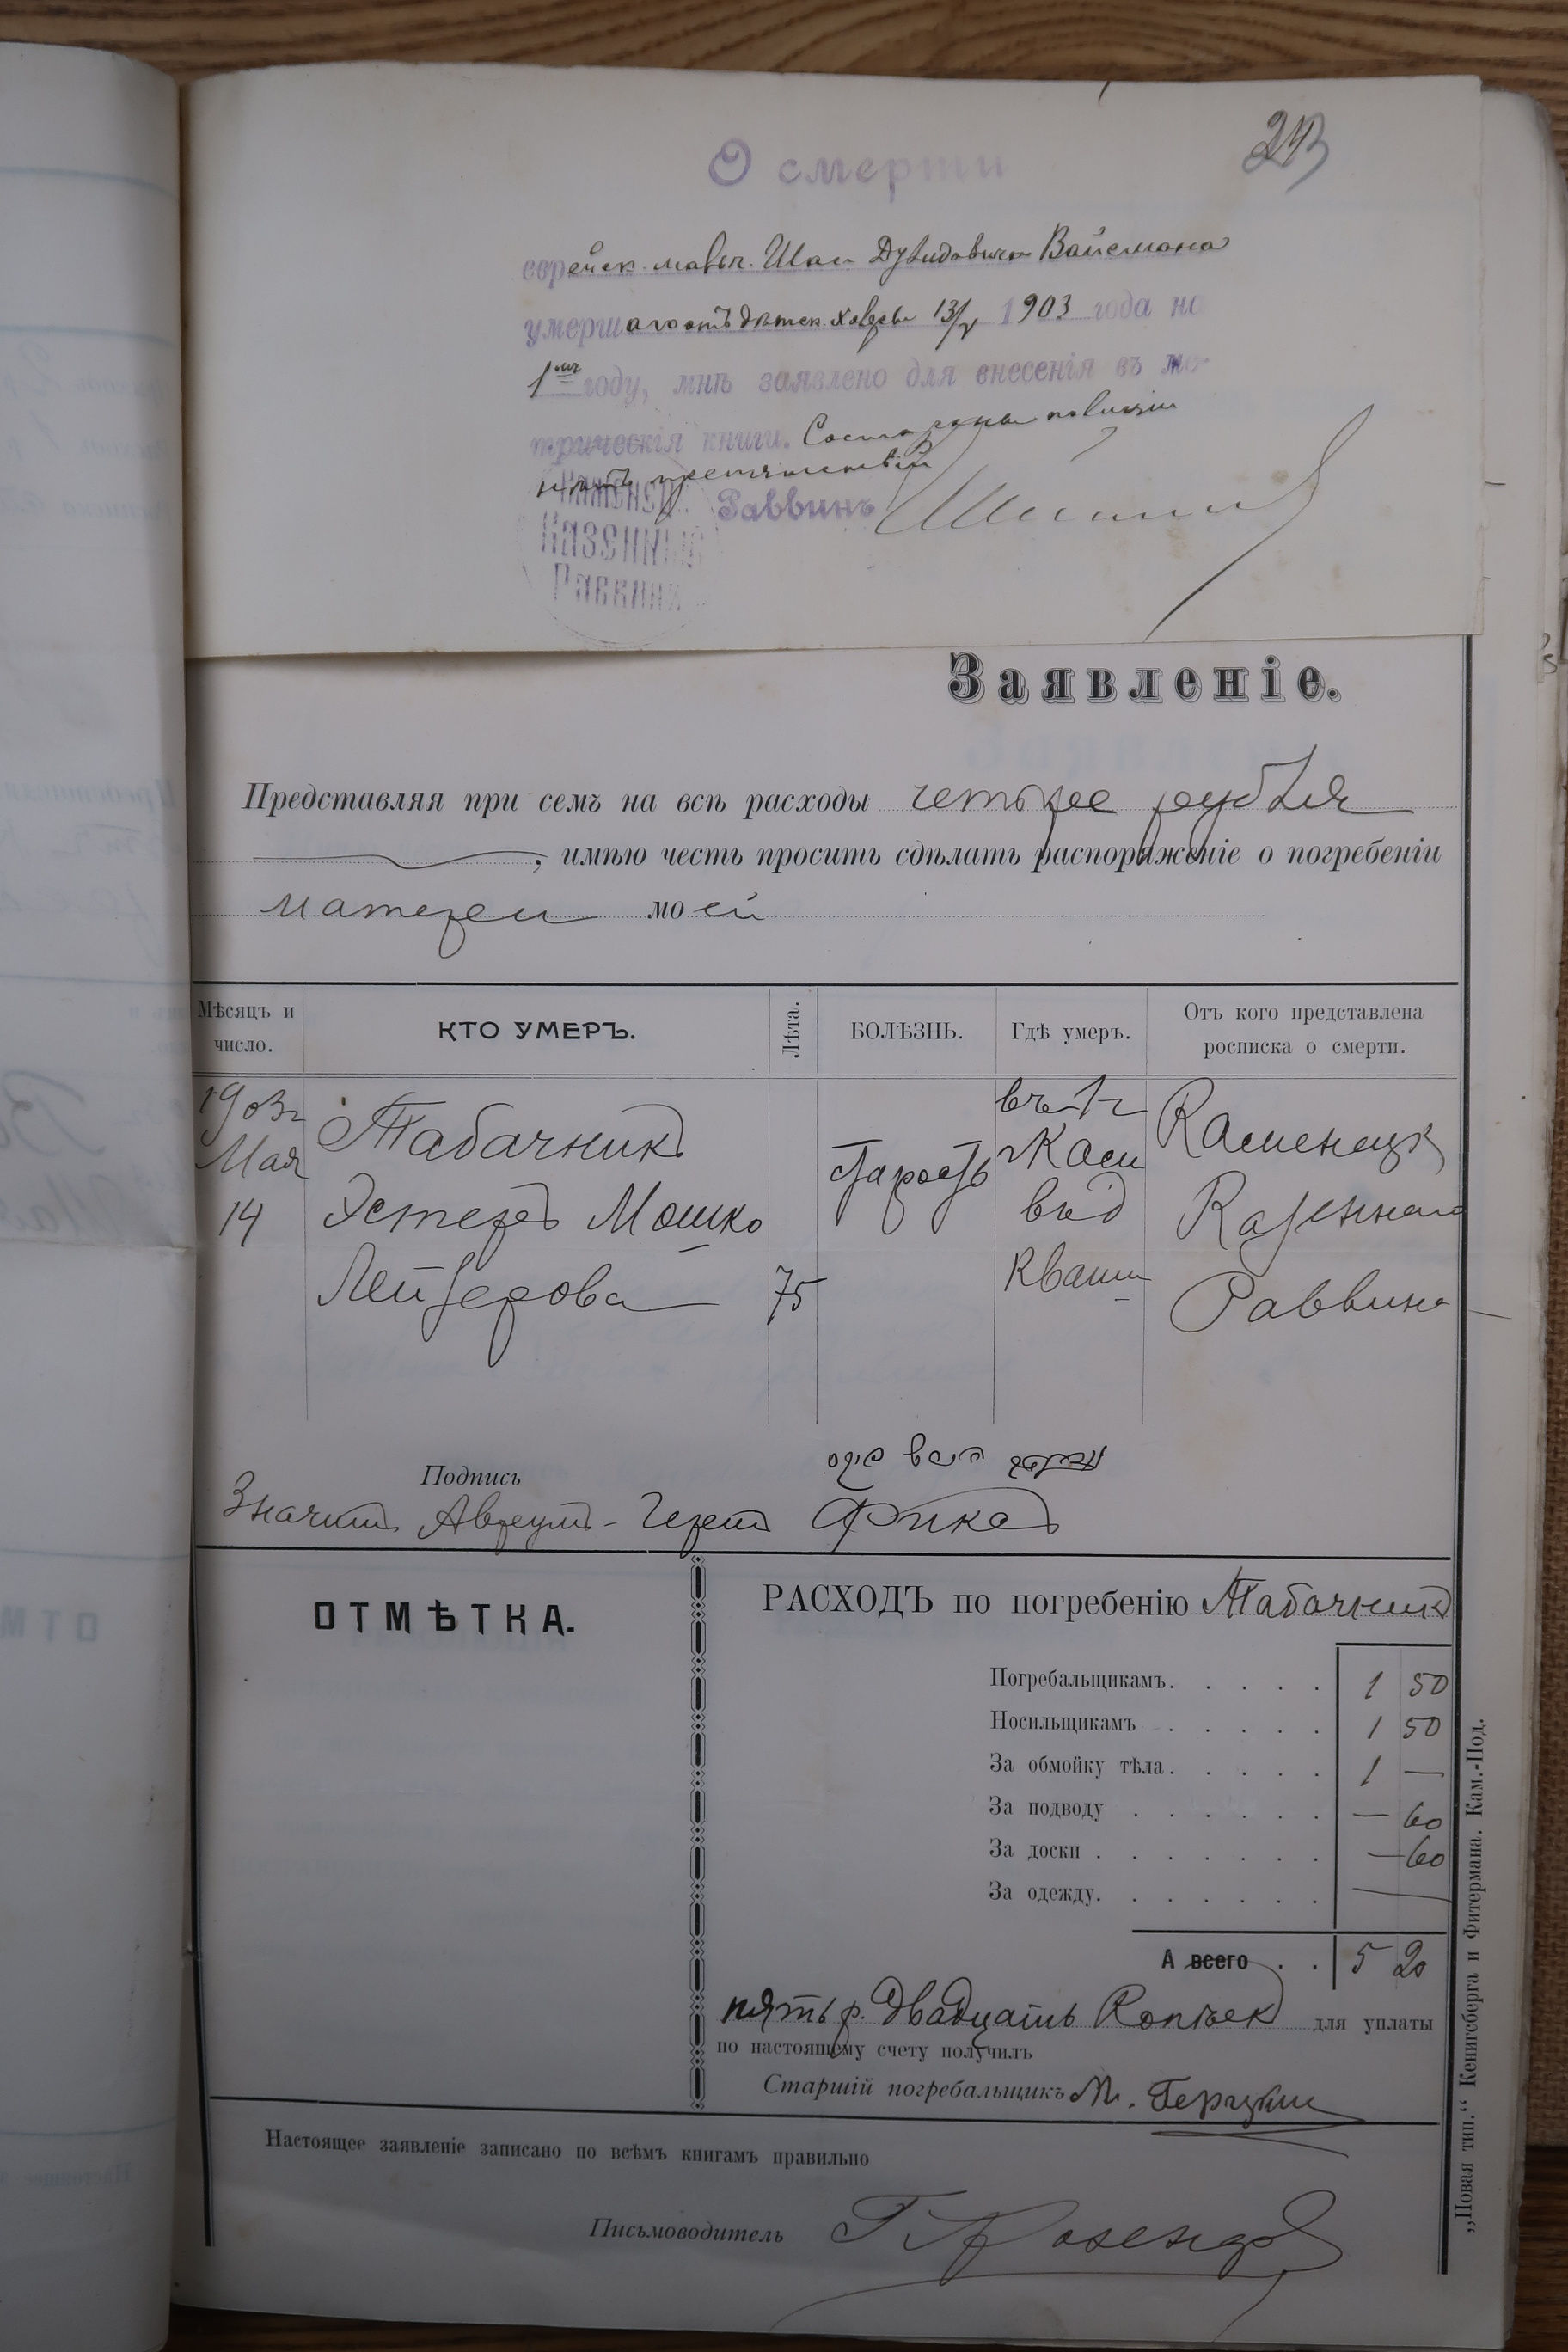 213
О смерти
еврейск. мальч. Шаи Дувидовича Вайсмана
умершаго отъ дѣтск. холеры 13/V 1903 года на
1мъ году, мнѣ заявлено для внесенія въ ме-
трическія книги. Со стороны полиціи
нѣтъ препятствій
Раввинъ
Каменец.
Казенный
Раввинъ
Заявленіе.
Представляя при семъ на всѣ расходы четыре рубля
, имѣю честь просить сдѣлать распоряженіе о погребеніи
матери моей
Мѣсяцъ и число.
КТО УМЕРЪ.
Лѣта.
БОЛѢЗНЬ.
Гдѣ умеръ.
Отъ кого представлена росписка о смерти.
1903 г Мая 14
Табачникъ Эстеръ Мошко Лейзерова
75
старость
въ г Кам въ д
Каменецк Казеннаго Раввина
Подпись
Значит Аврум-Герш
РАСХОДЪ по погребенію Табачникъ
ОТМѢТКА.
Погребальщикамъ. . . . . 1 50
Носильщикамъ . . . . . 1 50
За обмойку тѣла. . . . . 1 —
За подводу . . . . . . — 60
За доски . . . . . . . — 60
За одежду. . . . . . . —
А всего . . 5 20
пять р. двадцать Копѣек для уплаты
по настоящему счету получилъ
Старшій погребальщикъ М.
Настоящее заявленіе записано по всѣмъ книгамъ правильно
Письмоводитель
„Новая тип.“ Кенигсберга и Фитермана. Кам.-Под.